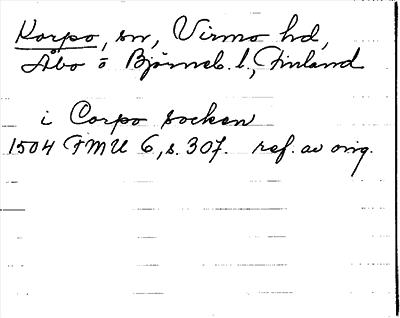 Korpo, sn, Virmo hd,
Åbo o Björneb. l, Finland
i Corpo socken
1504 FMU 6, s. 307. ref. av orig.